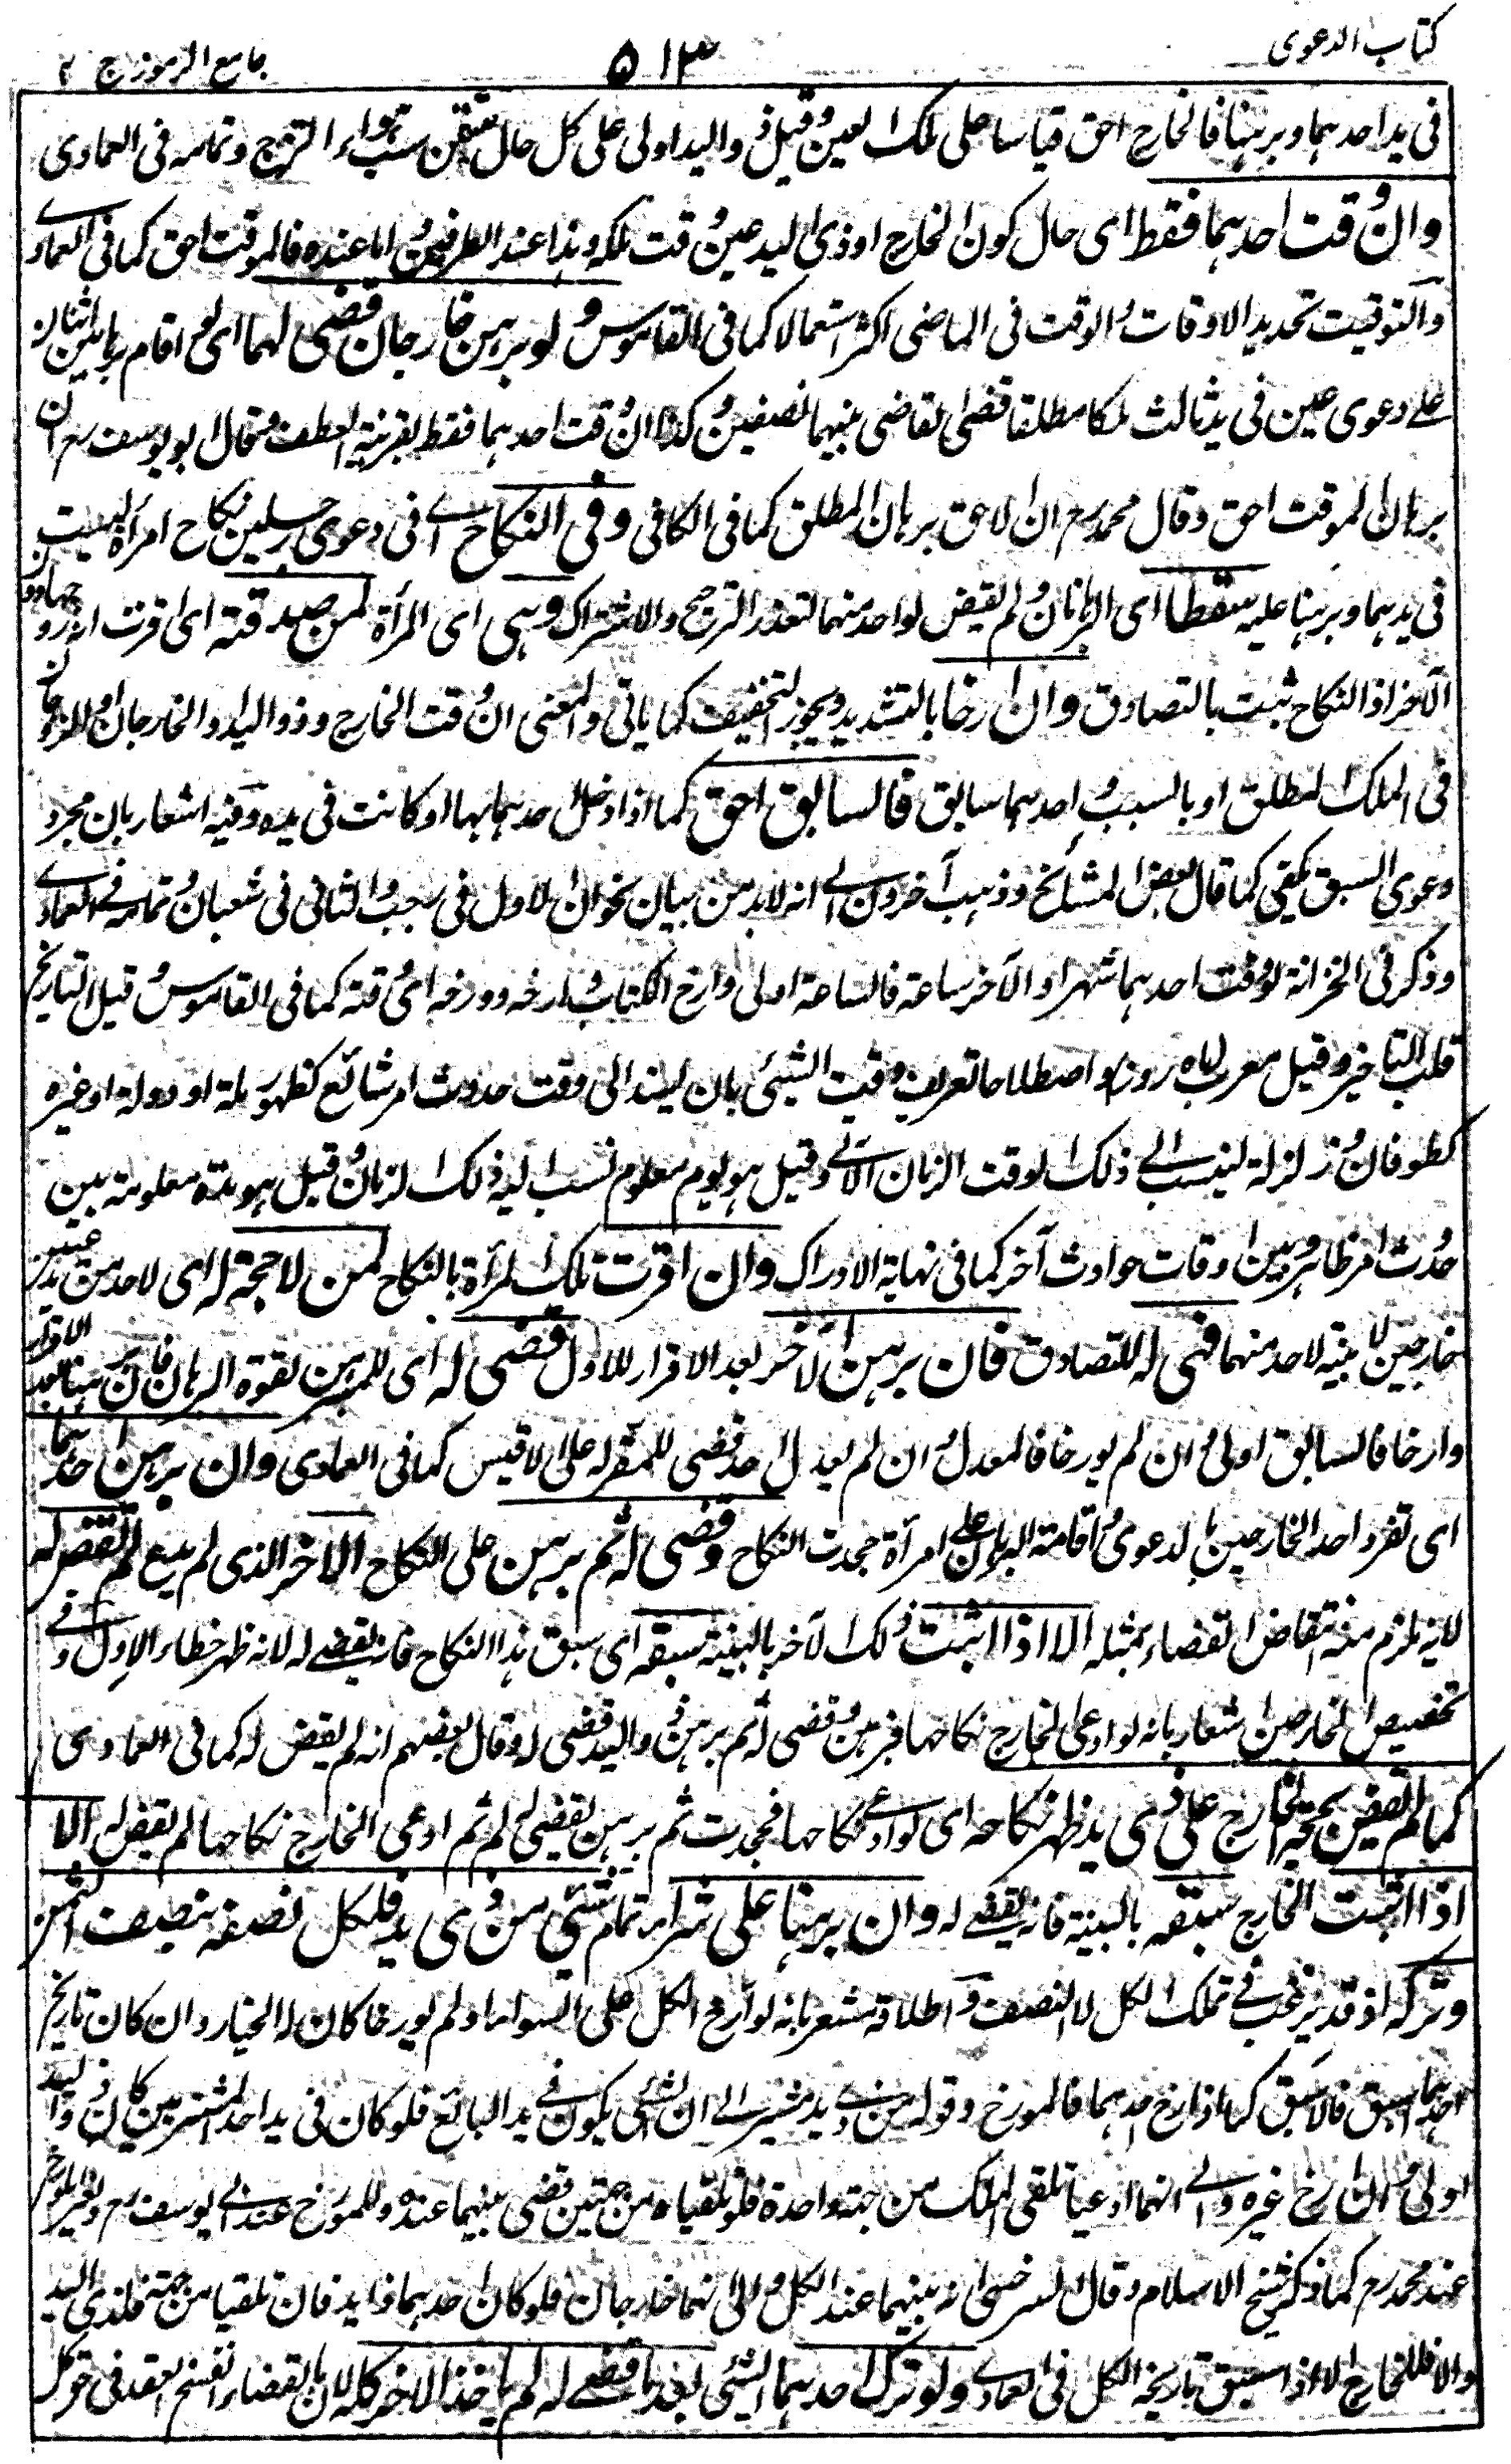 كتاب الدعوى
٥١٣
جامع الرموز ج ٢
فى يد احدهما وبرهنا فالخارج احق قياسا على ملك العين وقيل ذو اليد اولى على كل حال وتمامه فى العمادى
وان وقت احدهما فقط اى حال كون الخارج او ذى اليد حين وقت ملكه وهذا عند الطرفين واما عنده فالموقت احق كما فى العمادے
والتوقيت تحديد الاوقات والوقت فى الماضى اكثر استعمالا كما فى القاموس ولو برهن خارجان قضى لهما اى لو اقام برهانين اثنان
على دعوى عين فى يد ثالث ملكا مطلقا قضى القاضى بينهما نصفين وكذا ان وقت احدهما فقط بقرينة العطف وقال ابو يوسف رح ان
برهان الموقت احق وقال محمد رح ان الاحق برهان المطلق كما فى الكافى وفى النكاح اے فى دعوى رجلين نكاح امرأة ليست
فى يدهما وبرهنا عليه سقطا اى البرهانان ولم يقض لواحد منهما لتعذر الترجيح والاشتراك وهى اى المرأة لمن صدقته اى اقرت انه زوجها دون
الآخر اذ النكاح ثبت بالتصادق وان ارخا بالتشديد ويجوز التخفيف كما ياتى والمعنى ان وقت الخارج وذو اليد او الخارجان
فى الملك المطلق او بالسبب واحدهما سابق فالسابق احق كما اذا دخل احدهما بها او كانت فى يده وفيه اشعار بان مجرد
دعوى السبق يكفى كما قال بعض المشائخ وذهب آخرون الى انه لا بد من بيان نحو ان الاول فى رجب والثانى فى شعبان وتمامه فے العمادے
وذكر فى الخزانة لو وقت احدهما شهرا والآخر ساعة فالساعة اولى وارخ الكتاب وارخه وورخه اى وقته كما فى القاموس وقيل التاريخ
قلب التاخير وقيل معرب ماه روز واصطلاحا تعريف وقت الشئ بان يسند الى وقت حدوث امر شائع كظهور ملة او دولة او غيره
كطوفان وزلزلة لينسب الے ذلك الوقت الزمان الآتے وقيل هو يوم معلوم نسب اليه ذلك الزمان وقيل هو مدة معلومة بين
حدوث امر ظاهر وبين اوقات حوادث آخر كما فى نهاية الادراك وان اقرت تلك المرأة بالنكاح لمن لا حجة له اى لاحد من مدعيين
خارجين لا بينة لاحد منهما فهى له للتصادق فان برهن الآخر بعد الاقرار للاول قضى له اى للمبرهن لقوة البرهان فان برهنا بعد الاقرار
وارخا فالسابق اولى وان لم يورخا فالمعدل وان لم يعدل احد قضى للمقر له على الاقيس كما فى العمادى وان برهن احدهما
اى تفرد احد الخارجين بالدعوى واقامة البرهان على امرأة جحدت النكاح وقضى له ثم برهن على النكاح الآخر الذى لم يدع لم يقض له
لانه يلزم منه انتقاض القضاء بمثله الا اذا اثبت ذلك الآخر بالبينة سبقه اى سبق هذا النكاح فانه يقضے له لانه ظهر خطاء الاول وفے
تخصيص الخارجين اشعار بانه لو ادعى الخارج نكاحها فبرهن وقضى له ثم برهن ذو اليد قضى له وقال بعضهم انه لم يقض له كما فى العمادى
كما لم يقض بحجة الخارج على ذى يد ظهر نكاحه اى لو ادعے نكاحها فجحدت ثم برهن يقضى له ثم ادعى الخارج نكاحها لم يقض له الا
اذا اثبت الخارج سبقه بالبينة فانه يقضے له وان برهنا على شراء تمام شئ من ذى يد فلكل نصفه بنصف الثمن
وتركه اذ قد يرغب فے تملك الكل لا النصف وفى اطلاقه مشعر بانه لو ارخ الكل على السواء او لم يورخا كان له الخيار وان كان تاريخ
احدهما اسبق فالاسبق كما اذا ارخ احدهما فالمورخ وقوله من ذے يد مشير الے ان الشئ يكون فے يد البائع فلو كان فى يد احد المشتريين كان ذو اليد
اولى وان ارخ غيره والے انهما ادعيا تلقى الملك من جهة واحدة فلو تلقياه من جهتين قضى بينهما عنده وللمورخ عند ابے يوسف رح ولغير المورخ
عند محمد رح كما ذكر شيخ الاسلام وقال السرخسى انه بينهما عند الكل والى انهما خارجان فلو كان احدهما ذا يد فان تلقيا من جهة فلذى اليد
والا فللخارج الا اذا سبق تاريخه الكل فى العمادے ولو ترك احدهما الشئ بعد ما قضے له لم ياخذ الآخر كله لان بالقضاء انفسخ العقد فى حق كل